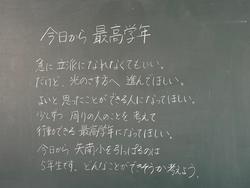 今日から 最高学年
急に 立派に なれなくてもいい。
だけど、光のさす方へ 進んでほしい。
よいと思ったことができる人になってほしい。
少しずつ 周りの人のことを 考えて
行動できる 最高学年になってほしい。
今日から 矢南小を引っぱるのは
5年生です。どんなことができそうか考えよう。